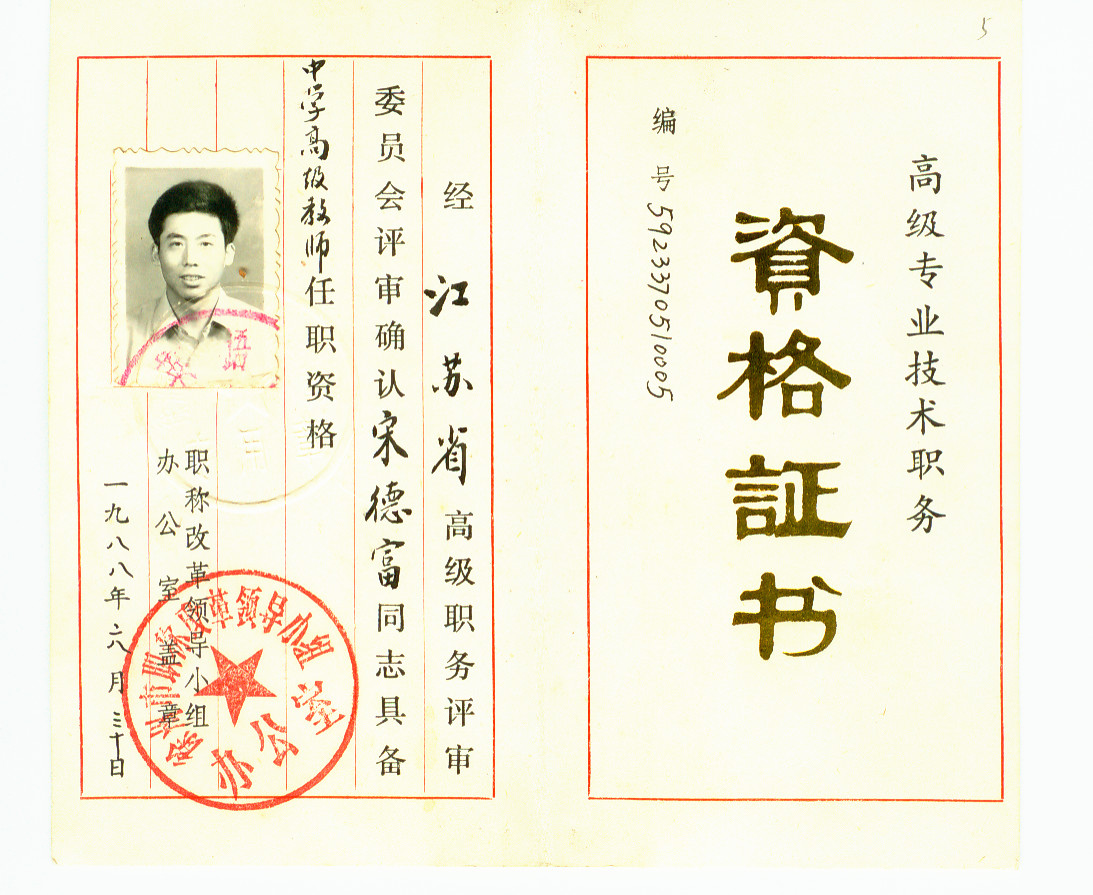 5
高级专业技术职务
資格証书
编号 5923370510005
经江苏省高级职务评审
委员会评审确认宋德富同志具备
中学高级教师任职资格
职称改革领导小组
办公室盖章
一九八八年 月三十日
改革領导小组
办公室